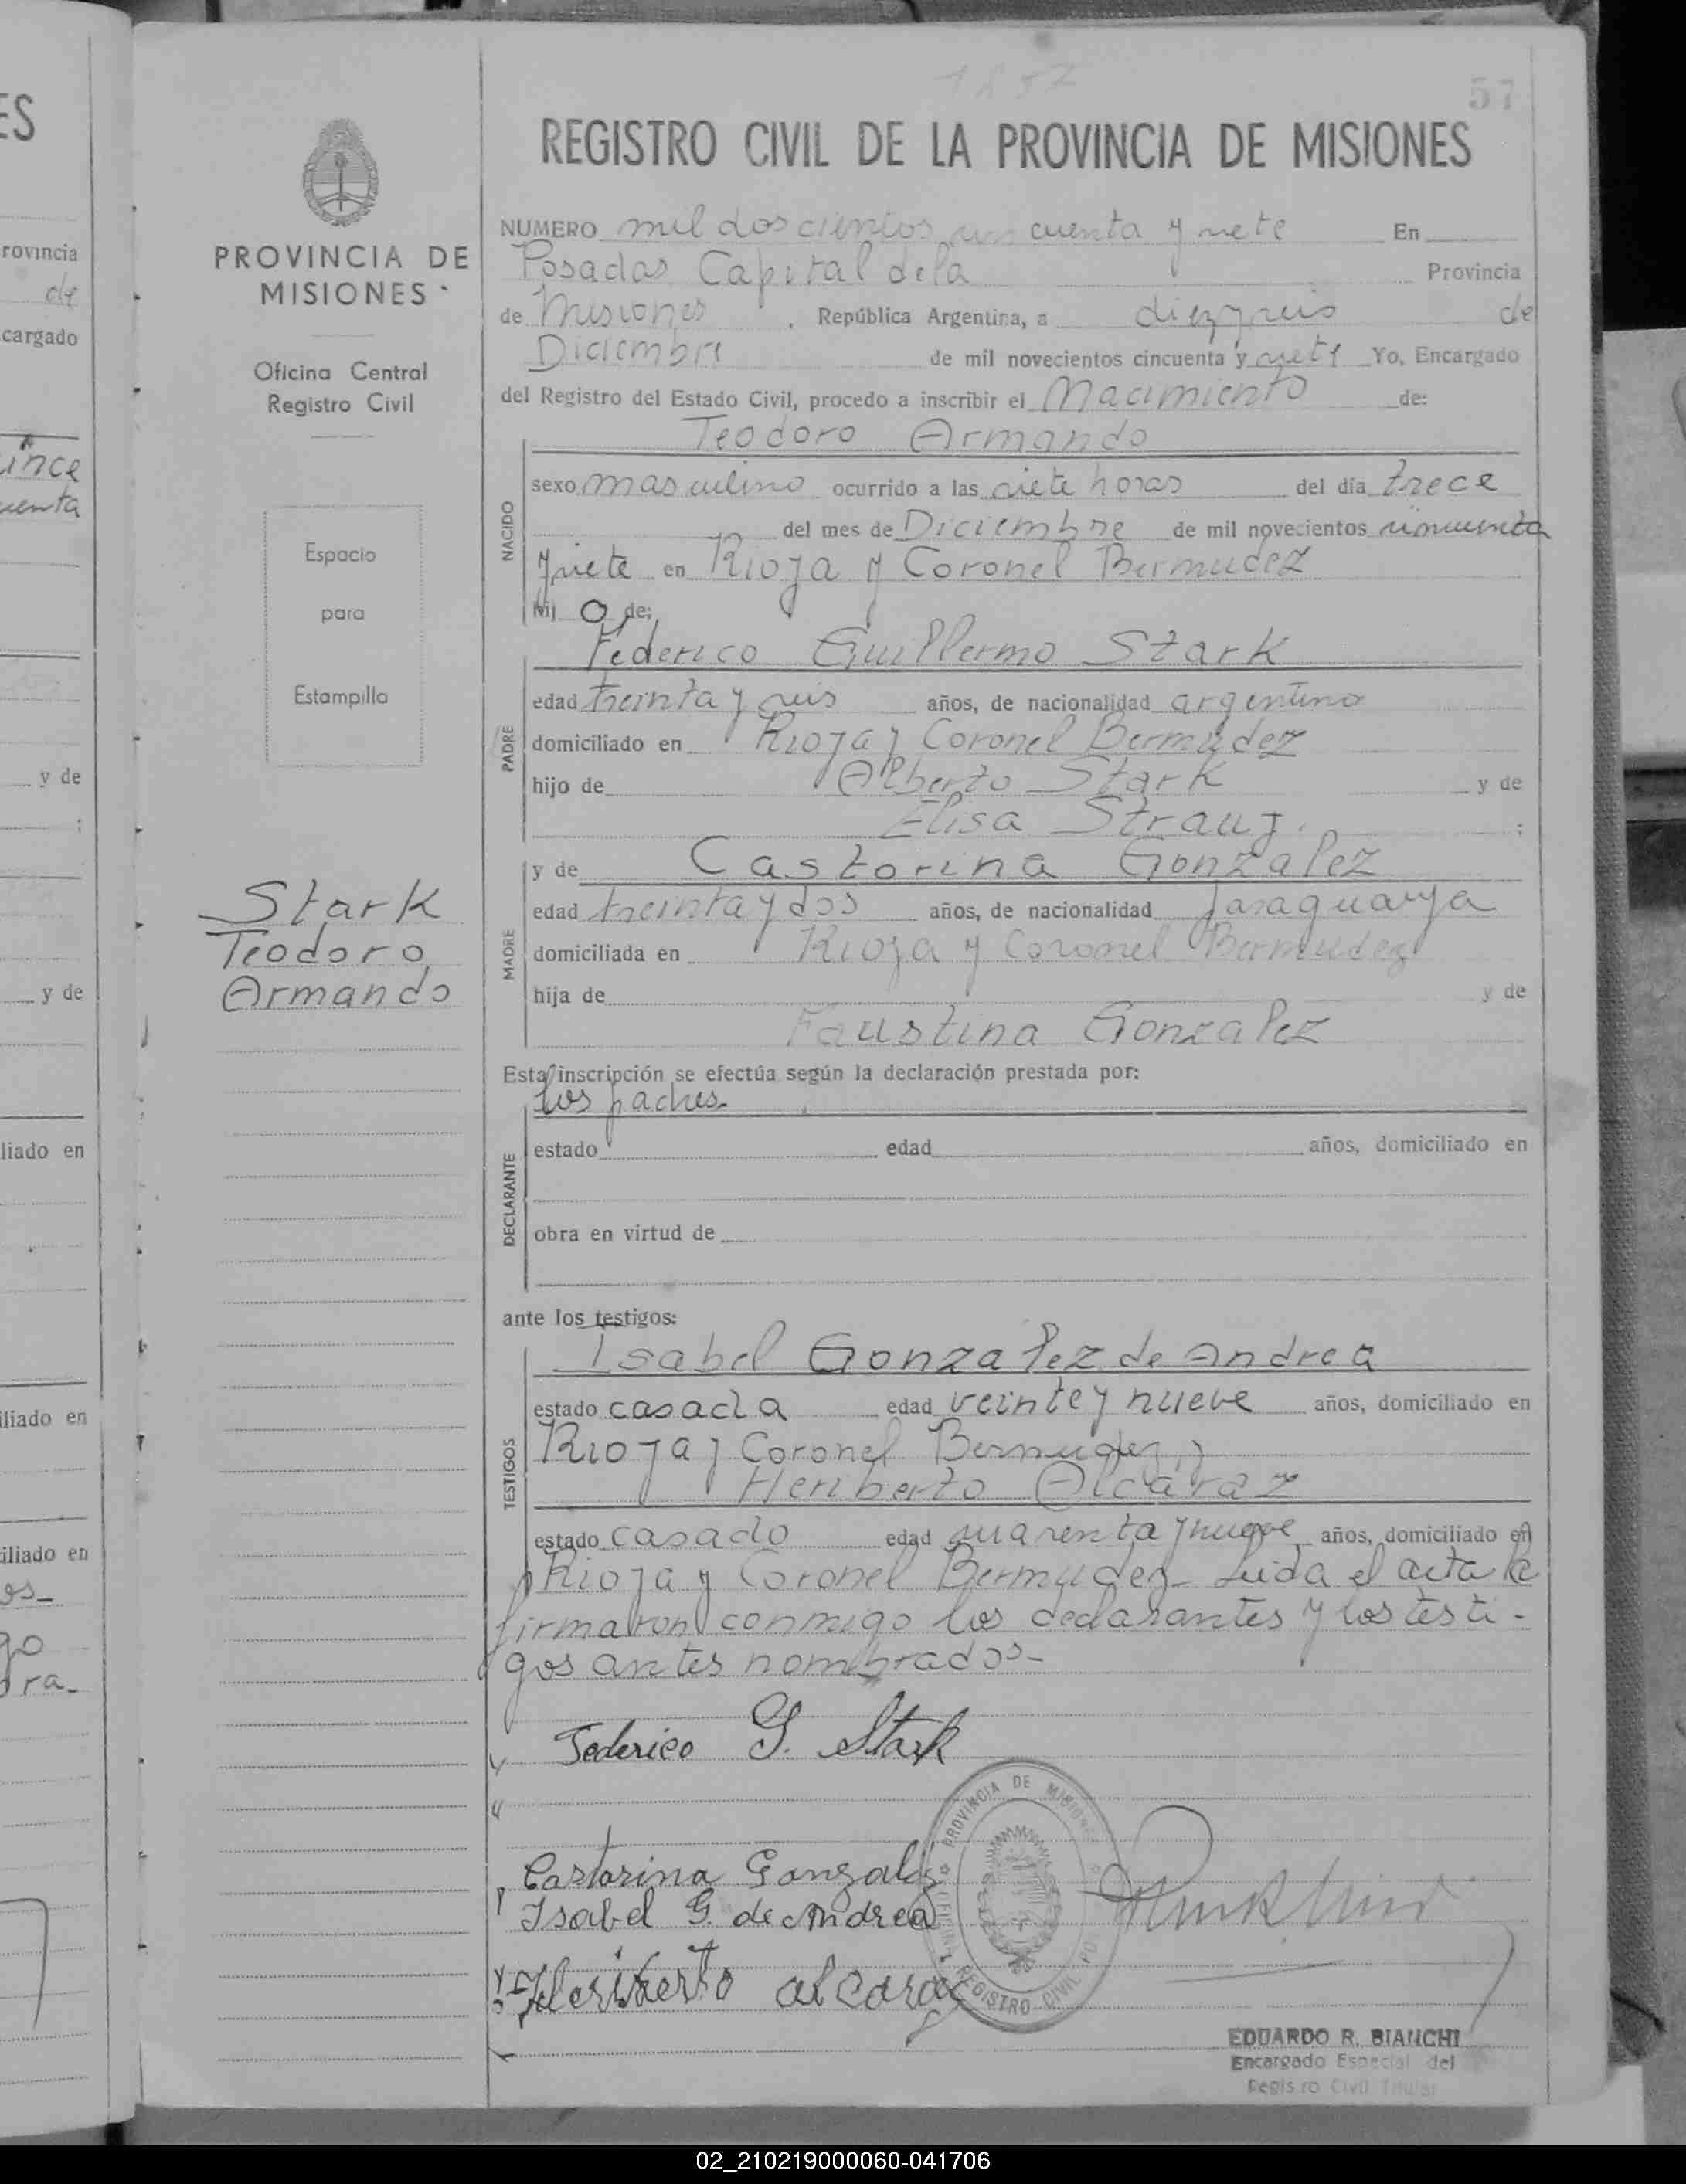 ES
rovincia
de
cargado
ince
uenta
y de
:
y de
liado en
iliado en
iliado en
os_
go
ra_
PROVINCIA DE
MISIONES
Oficina Central
Registro Civil
Espacio
para
Estampilla
Stark
Teodoro
Armando
57
REGISTRO CIVIL DE LA PROVINCIA DE MISIONES
NUMERO mil doscientos cincuenta y siete En
Posadas Capital de la Provincia
de Misiones, República Argentina, a diez y seis de
Diciembre de mil novecientos cincuenta y siete Yo, Encargado
del Registro del Estado Civil, procedo a inscribir el Nacimiento de:
Teodoro Armando
NACIDO
sexo masculino ocurrido a las siete horas del día trece
del mes de Diciembre de mil novecientos cincuenta
y siete en Rioja y Coronel Bermudez
hijo de:
Federico Guillermo Stark
PADRE
edad treinta y seis años, de nacionalidad argentino
domiciliado en Rioja y Coronel Bermudez
hijo de Alberto Stark y de
Elisa :
y de Castorina Gonzalez
MADRE
edad treinta y dos años, de nacionalidad paraguaya
domiciliada en Rioja y Coronel Bermudez
hija de y de
Faustina Gonzalez
Esta inscripción se efectúa según la declaración prestada por:
los padres
DECLARANTE
estado edad años, domiciliado en
obra en virtud de
ante los testigos:
Isabel Gonzalez de Andrea
TESTIGOS
estado casada edad veinte y nueve años, domiciliado en
Rioja y Coronel Bermudez y
Heriberto Alcaraz
estado casado edad cuarenta y nueve años, domiciliado en
Rioja y Coronel Bermudez_ Leida el acta la
firmaron conmigo los declarantes y los testi-
gos antes nombrados_
Federico G. Stark
Castorina Gonzalez
Isabel G. de Andrea
Heriberto alcaraz
PROVINCIA DE MISIONES
REGISTRO CIVIL
EDUARDO R. BIANCHI
Encargado Especial del
Registro Civil Titular
02_210219000060-041706